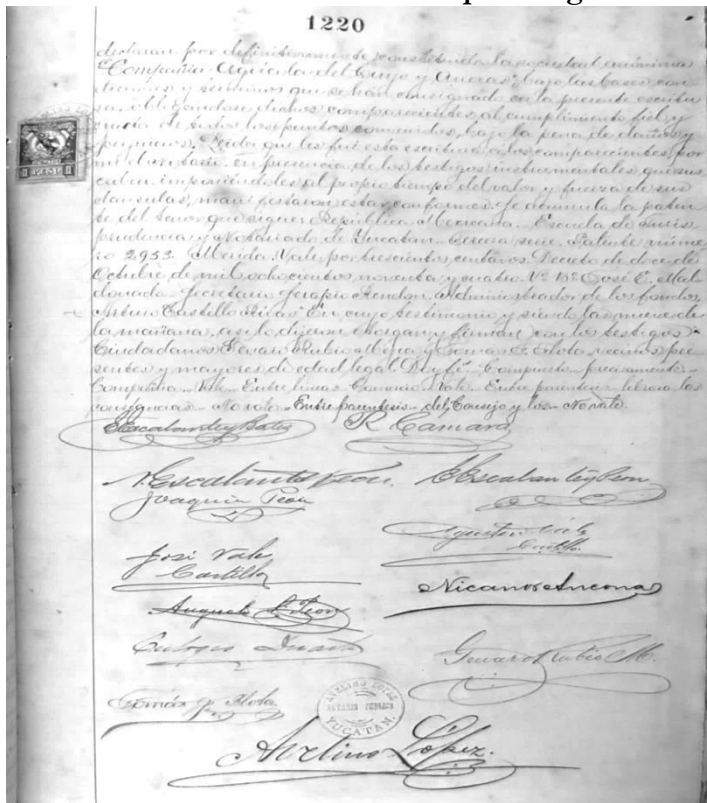 1220
declaran por definitivamente constituida la sociedad anónima
"Compañía Agrícola del Cuyo y Anexas", bajo las bases con
diciones y términos que se han consignado en la presente escritu
ra, obligándose dichos comparecientes al cumplimiento fiel y
de todos los puntos convenidos, bajo la pena de daños y
perjuicios. Leida que les fué esta escritura a los comparecientes, por
mí el notario, en presencia de los testigos instrumentales, que sus
criben imponiéndoles al propio tiempo del valor y fuerza de sus
cláusulas, manifestaron estar conformes. Se acumula la paten
te del tenor que sigue: República Mexicana. Escuela de Juris
prudencia y Notariado de Yucatan. Tercera serie. Patente núme
ro 2953. Mérida. Vale por trescientos centavos. Decreto de doce de
Octubre de mil ochocientos noventa y cuatro. Vº Bº José E. Mal
donado. Secretario Serapio Rendon. Administrador de los fondos,
Arturo Castillo Rivas." En cuyo testimonio y siendo las nueve de
la mañana, así lo dijeron otorgan y firman con los testigos
Ciudadanos Genaro Rubio Mena y Tomás P. Flota, vecinos pre
sentes y mayores de edad legal. Doy fé.
Vale. Entre lineas Vale. Entre parentesis
No vale. Entre parentesis del Consejo y los No vale.
E Escalante y Bates
R. Camara
N. Escalante Peon.
E Escalante y Peon
Joaquin Peon
Agustin Vales
Castillo
José Vales
Castillo
Nicanor Ancona
Augusto L. Peon
Eulogio Duarte
Genaro Rubio M.
Tomás P. Flota
AVELINO LOPEZ
NOTARIO PUBLICO
YUCATAN
Avelino López.